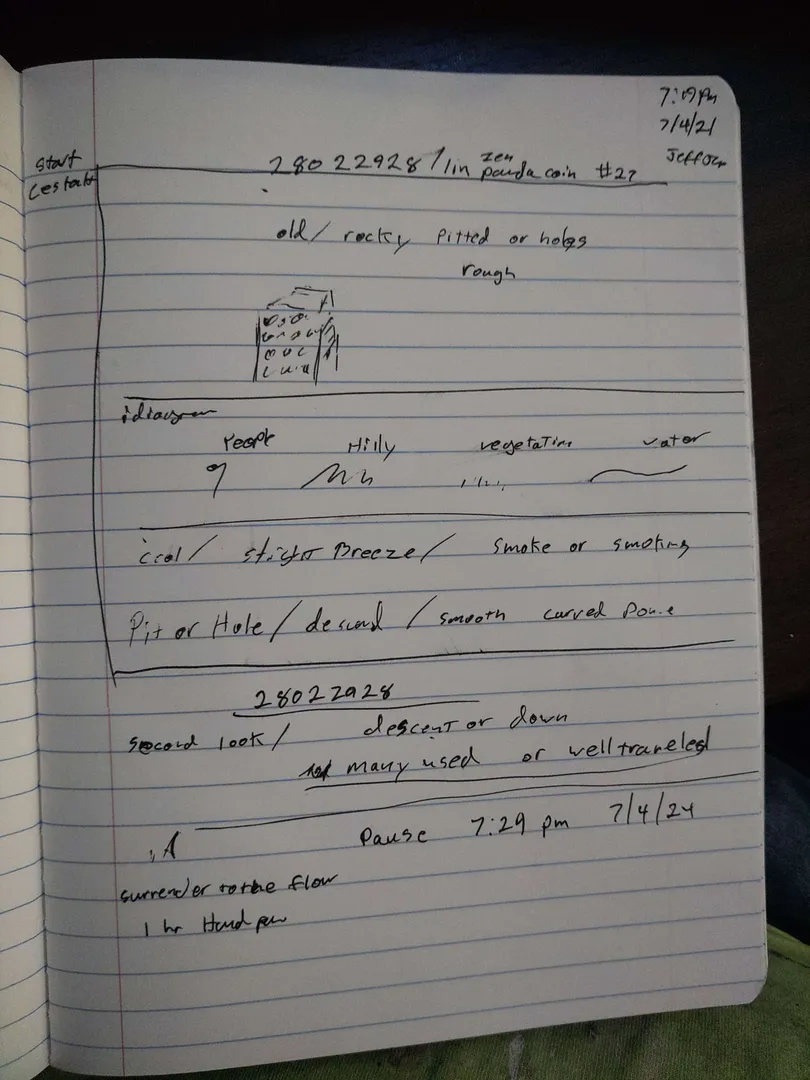 7:09 PM
7/4/21
start
28022928 / lin zen panda coin #27
old / rocky Pitted or holes
rough
ideogram
People Hilly vegetation water
cool / slight Breeze / Smoke or smoking
Pit or Hole / descend / smooth curved
28022928
second look / descent or down
many used or well traveled
Pause 7:29 pm 7/4/24
surrender to the flow
1 hr Hand pan